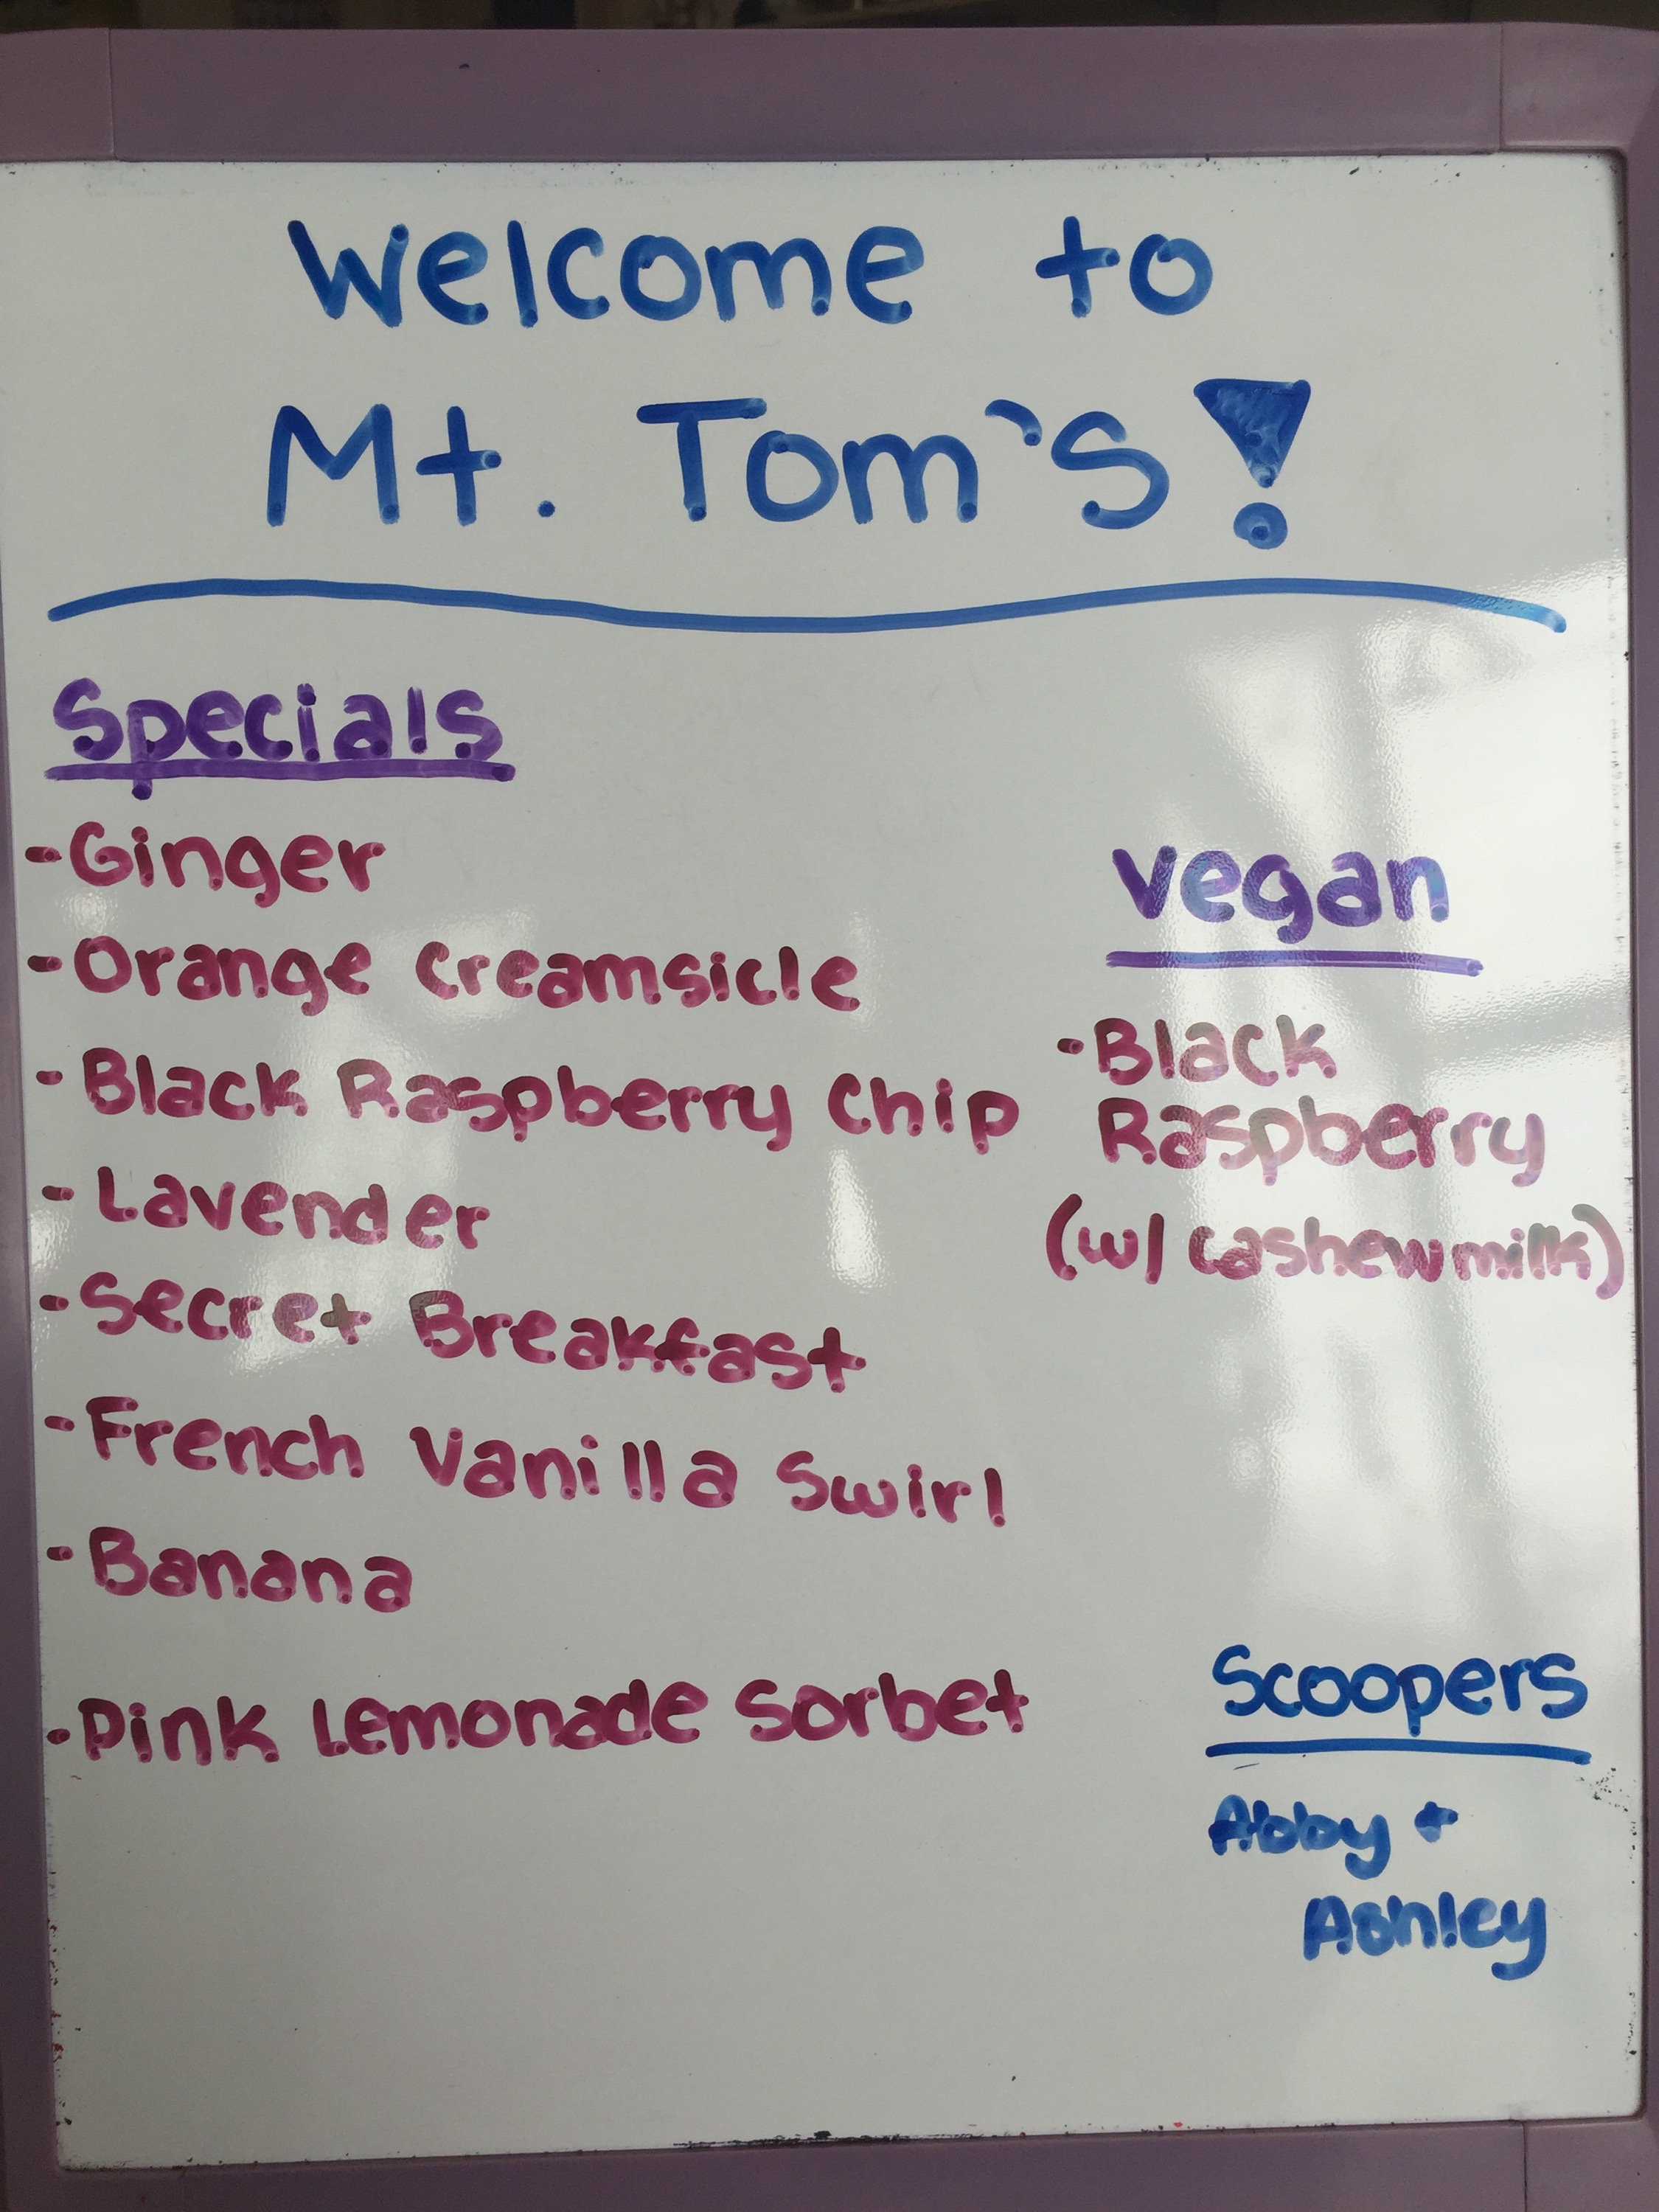 Welcome to
Mt. Tom's!
Specials
-Ginger
-Orange Creamsicle
-Black Raspberry Chip
-Lavender
-Secret Breakfast
-French Vanilla Swirl
-Banana
-Pink Lemonade Sorbet
Vegan
-Black
Raspberry
(w/ cashewmilk)
Scoopers
Abby +
Ashley